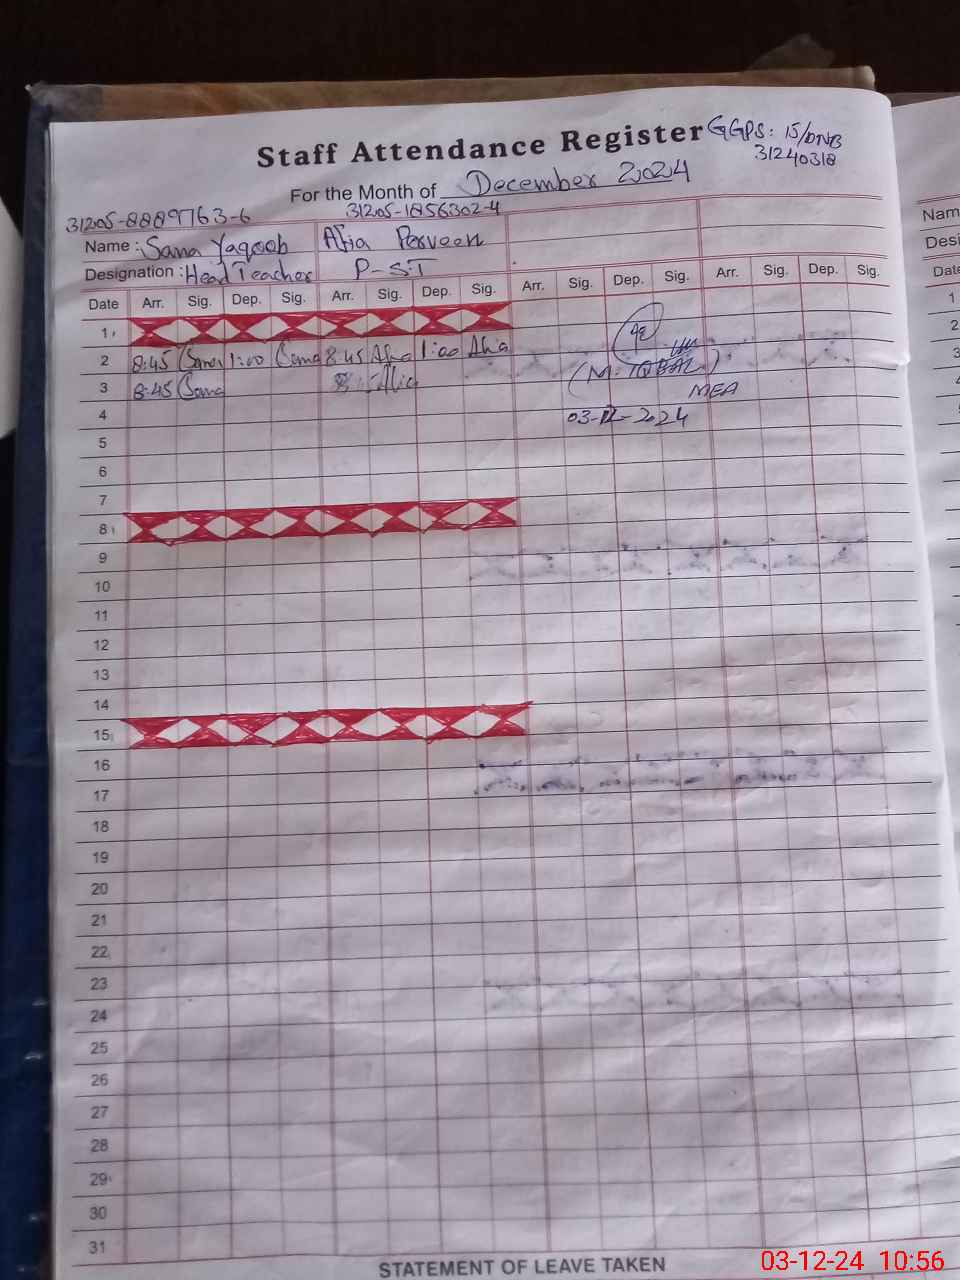 Staff Attendance Register GGPS: 15/DNB
31240318
For the Month of December 2024
31205-8889763-6 31205-1856302-4
Name : Sana Yaqoob Afia Perveen
Designation : Head Teacher P-S.T
Date Arr. Sig. Dep. Sig. Arr. Sig. Dep. Sig. Arr. Sig. Dep. Sig. Arr. Sig. Dep. Sig.
1
2 8:45 Sana 1:00 Sana 8:45 Afia 1:00 Afia
3 8:45 Sana Afia (M. IQBAL) MEA
4 03-12-2024
5
6
7
8
9
10
11
12
13
14
15
16
17
18
19
20
21
22
23
24
25
26
27
28
29
30
31
STATEMENT OF LEAVE TAKEN
Nam
Desi
Date
1
2
3
03-12-24 10:56